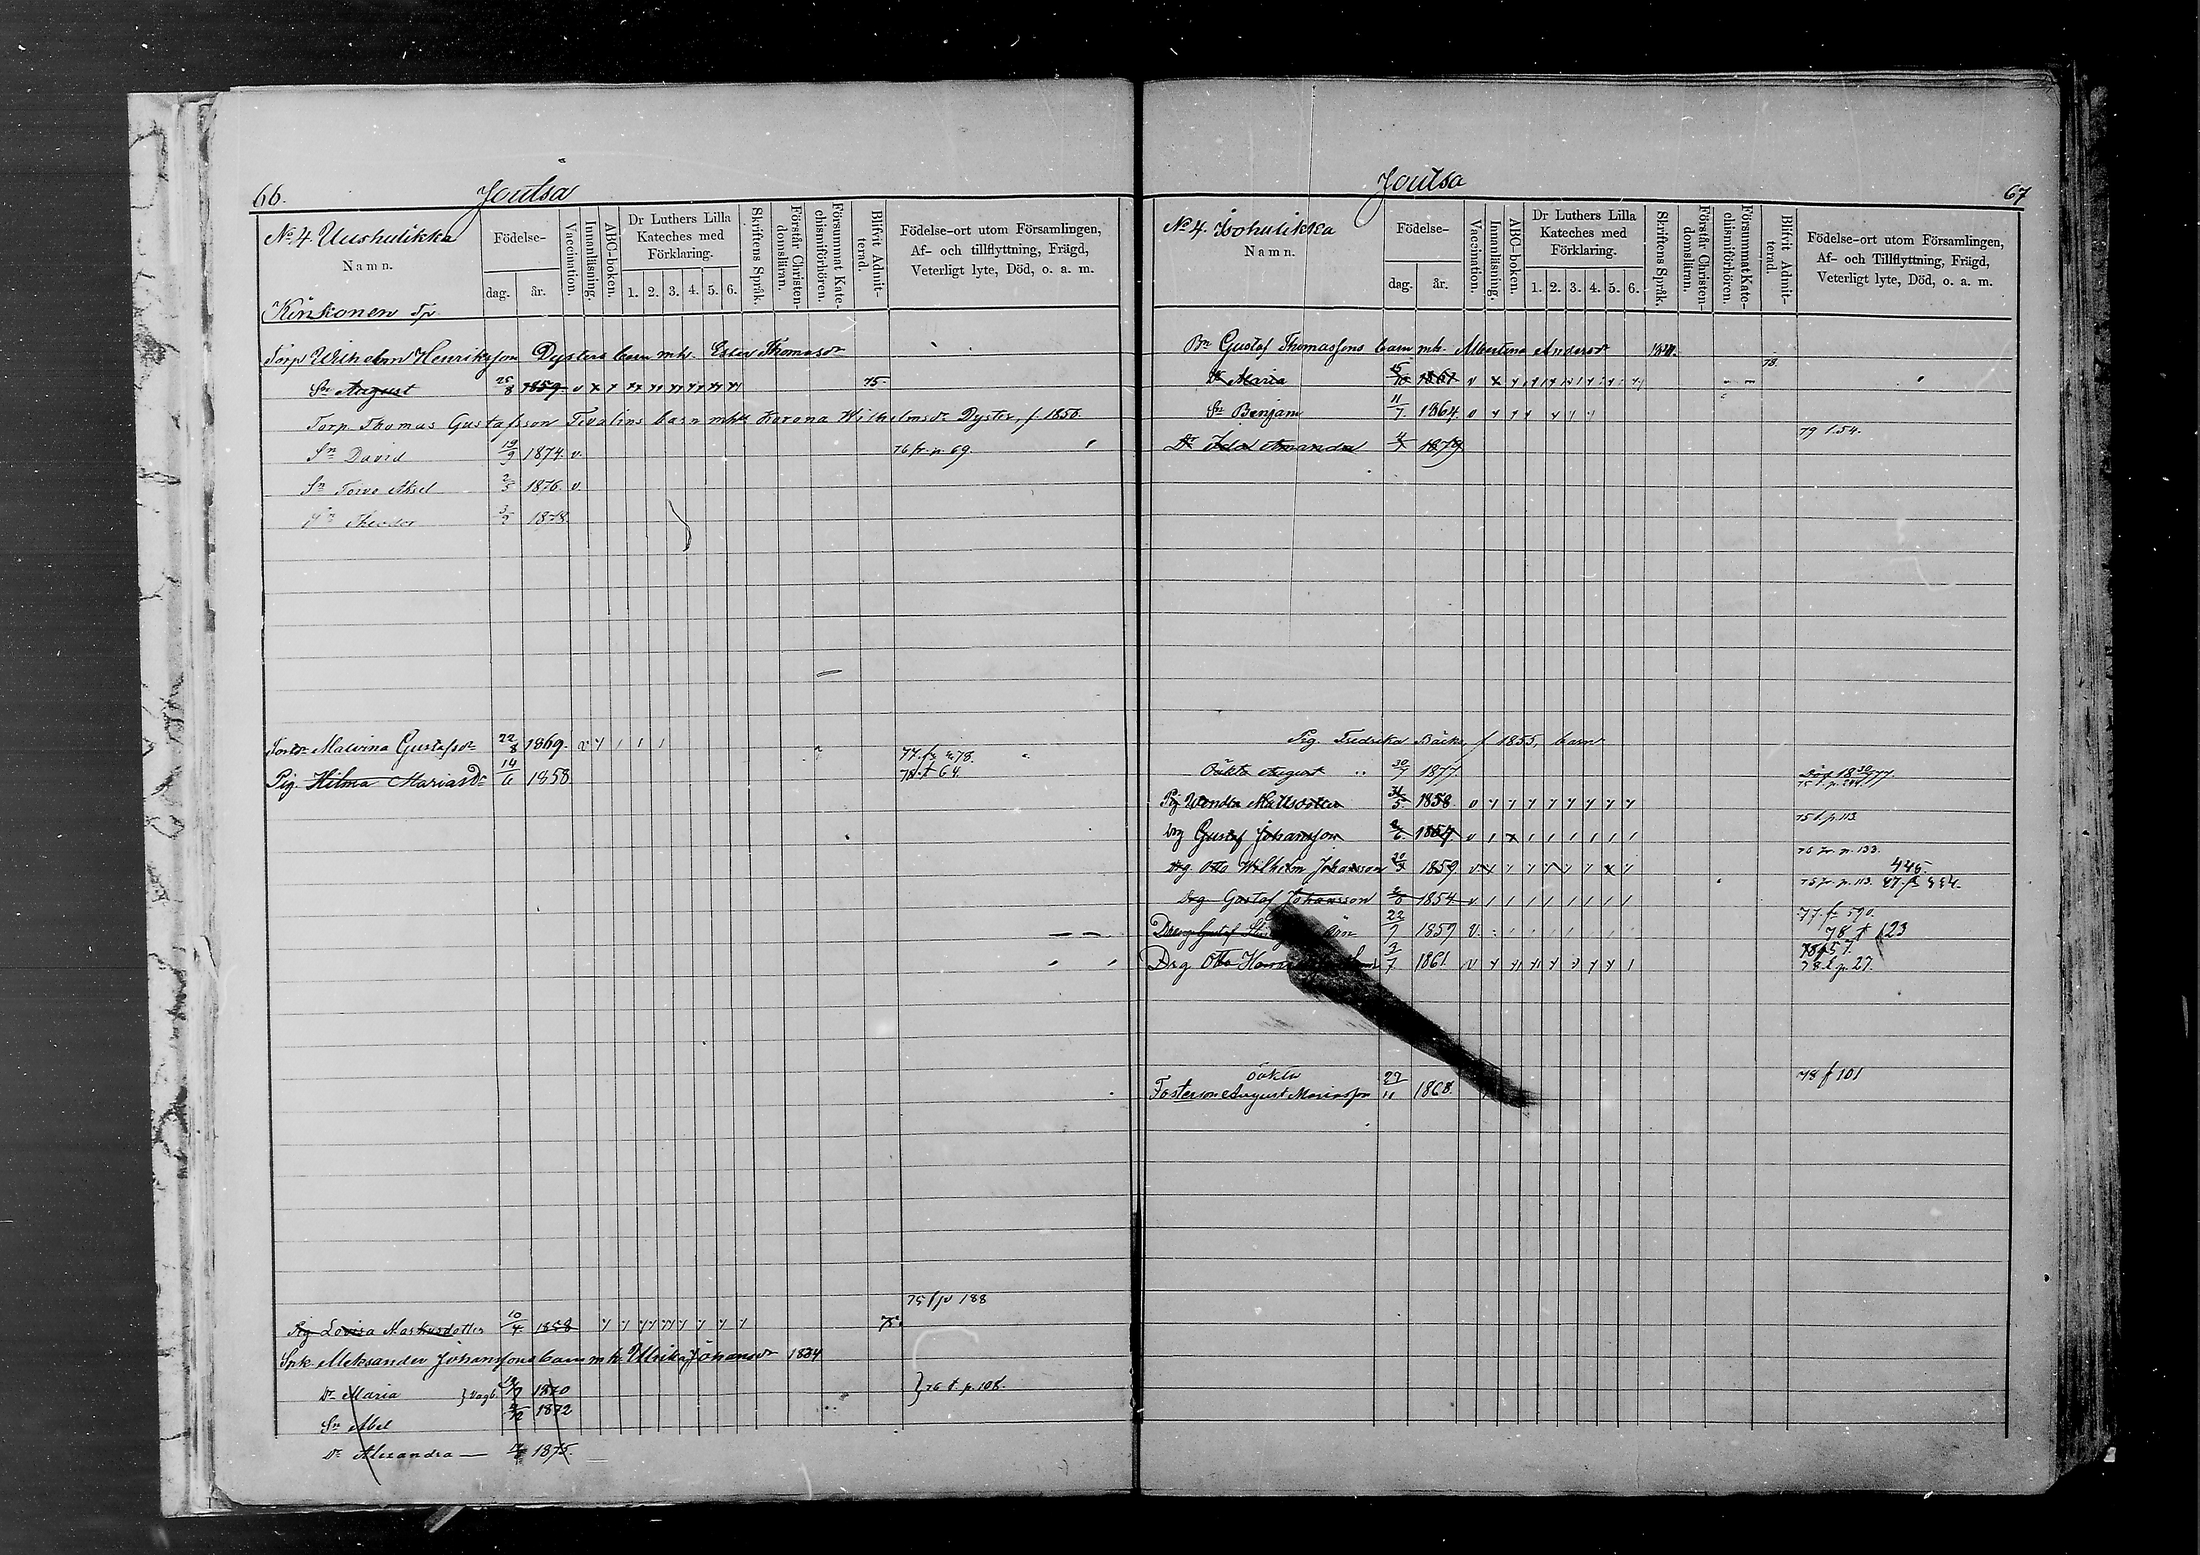 66.
Joutsa
No. 4. Uushulikka
Namn.
Födelse-
dag.
år.
Vaccination.
Innanläsning.
ABC-boken.
Dr Luthers Lilla
Kateches med
Förklaring.
1. 2. 3. 4. 5. 6.
Skriftens Språk.
Förstår Christen-
domsläran.
Försummat Kate-
chismiförhören.
Blifvit Admit-
terad.
Födelse-ort utom Församlingen,
Af- och tillflyttning, Frägd,
Veterligt lyte, Död, o. a. m.
Torp Wilhelm Henriksson Dysters barn mh. Ester Thomasdr
Sn August 25/8 1859 75.
Torp. Thomas Gustafsson barn Wilhelmsdr Dyster, f. 1856.
Sn David 19/9 1874. v. 76 fr. p. 69.
Sn Toivo Aksel 2/5 1876. v.
Sn Theodor 1878.
Malvina Gustafsdr 22/8 1869. 77. fr. 78.
Pig. Hilma Mariasdr 14/6 1858 78. t 64.
75 f p 188
Pig Lovisa Markusdotter 10/4 1858 75.
Aleksander Johanssons barn mh Ulrika Johansdr 1834
Dr Maria 1870 76 t. p. 108.
Sn Abel 1872
Dr Alexandra 1875.
Joutsa
67
No. 4. Isohulikka
Namn.
Födelse-
dag.
år.
Vaccination.
Innanläsning.
ABC-boken.
Dr Luthers Lilla
Kateches med
Förklaring.
1. 2. 3. 4. 5. 6.
Skriftens Språk.
Förstår Christen-
domsläran.
Försummat Kate-
chismiförhören.
Blifvit Admit-
terad.
Födelse-ort utom Församlingen,
Af- och Tillflyttning, Frägd,
Veterligt lyte, Död, o. a. m.
Bn Gustaf Thomassons barn mh. Albertina Andersdr
Dr Maria 1861 78.
Sn Benjam 11/7 1864.
Dr Ida Amanda 1879 79 t. 54.
Pig. Fredrika f 1855, barn
Oäkta August 30/7 1877.
Pig Wendla Mattsdotter 31/5 1858
Drg Gustaf Johansson 1854 75 t. p. 113.
Drg. Otto Wilhelm Johansson 1859 76 fr. p. 133.
Drg Gustaf Johansson 1854 75 fr. p. 113.
Dreng Gustaf 22/9 1859 77. fr 590.
Drg Otto 1861. 78 t. p. 27.
oäkta
Fosterson August Mariasson 27/11 1868. 78 f 101